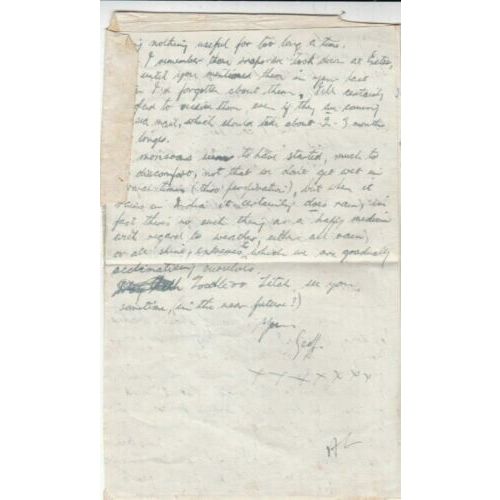 nothing useful for too long a time.
I remember those snaps we took over at Easter,
until you mentioned them in your last
I'd forgotten about them, I'll certainly
to receive them even if they are coming
sea mail, which should take about 2-3 months
longer.
monsoons seem to have started, much to
discomfort, not that we don't get wet in
(thro' perspiration), but when it
rains in India it certainly does rain, in
fact there's no such thing as a happy medium
with regard to weather, either all rain,
or all shine, extremes to which we are gradually
acclimatising ourselves.
Toodleoo Titch, see you
sometime, (in the near future?)
Yours
Geoff.
x x x x x x x x